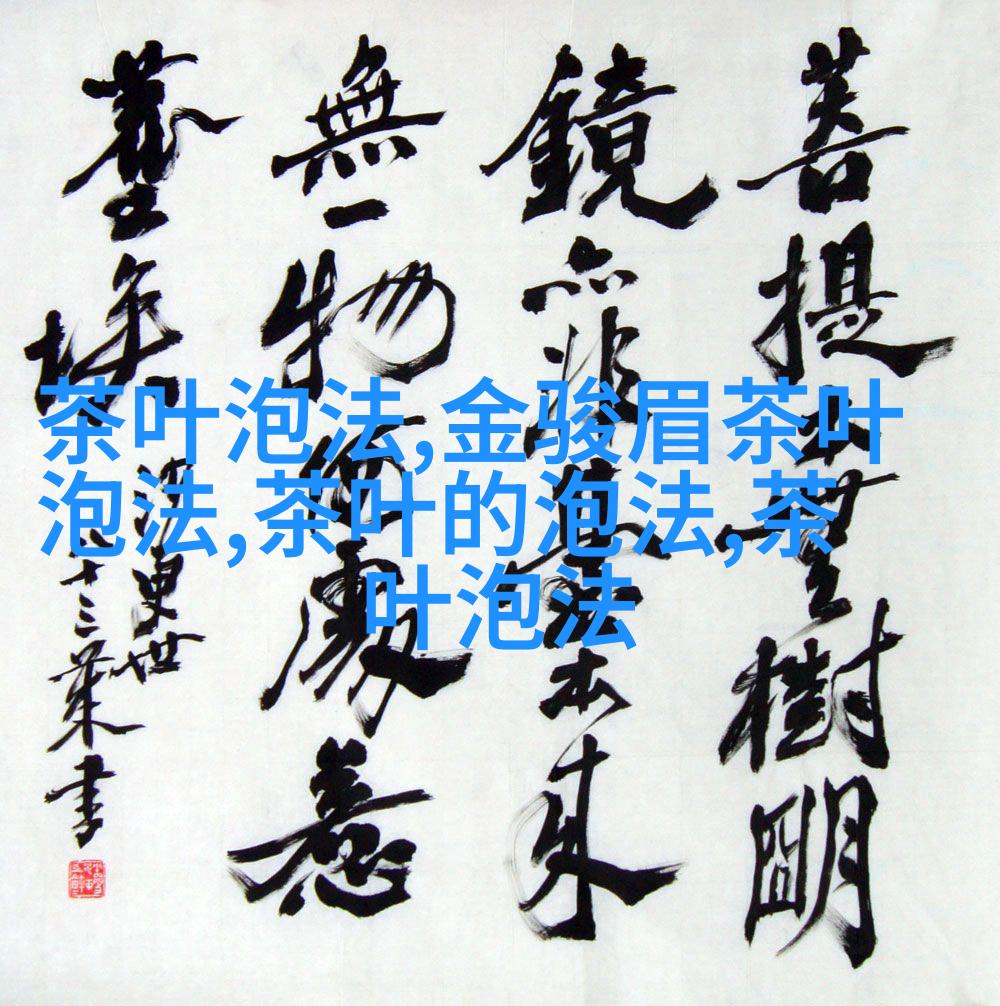 菩提本無樹朙
鏡亦非臺本来
無一物何處惹
塵埃
茶叶泡法,金骏眉茶叶
泡法,茶叶的泡法,茶
叶泡法